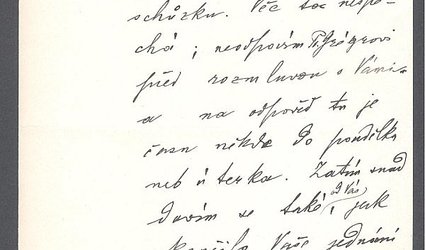 schůzku. Věc tac nespě-
chá; neodpovím Tr.Grégrovi
před rozmluvou s Vámi -
a na odpověd tu je
času někde do pondělka
neb úterka. Zatím snad
dovím se také, od Vás, jak
skončilo Vaše jednání